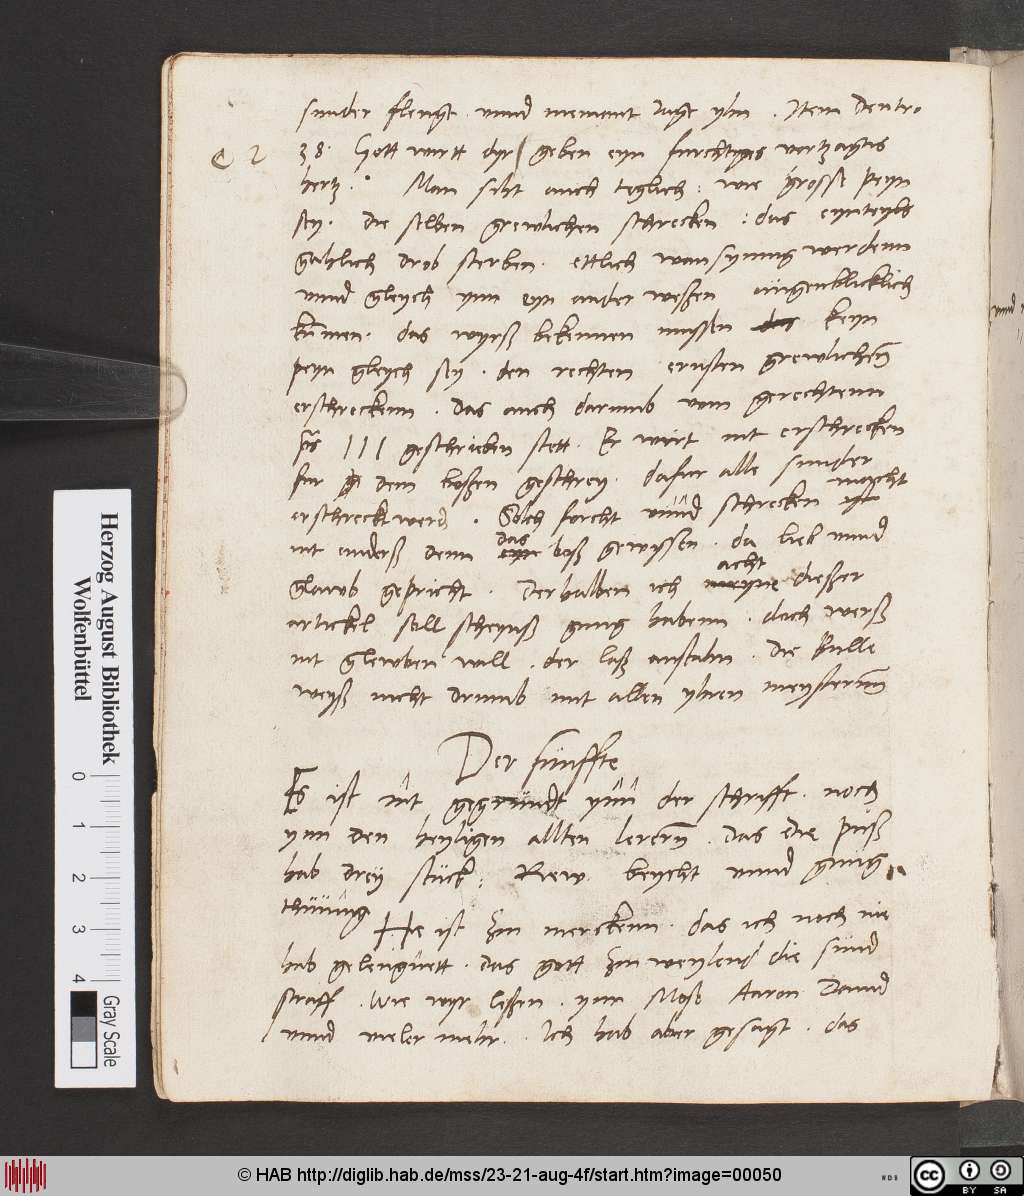 sunder fleugt . unnd niemant iagt yhn . Item Deutro
38. Gott wirtt dyr / geben eyn furchtigs vortzagtis
C 2
hertz . Man siht auch teglich : wie grosse peyn
sey . die selben grewlichen schrecken : das eynteyls
gahlich drob sterben . ettlich wansynnig werdenn
unnd gleych ynn eyn ander weßen augenblicklich
kumen . das wyrß bekennen mussen das keyn
peyn gleych sey . den rechten ernsten grewlichenn
erschreckenn . Das auch darumb vom gerechtenn
ps 111 geschrieben stett . Er wirt nit erschrecken
fur dem boßen geschrey . dafur alle sunder
erschreckt werd . Solch forcht unnd schrecken macht
nit anderß denn das boß gewyssen . da lieb unnd
glawb gepricht . Derhalben ich acht dießer
artickel soll scheynß gnug habenn . doch werß
nit glewben will . der laß anstahn . Die Bulle
weyß nicht drumb mit allen yhren meysternn
Der funffte
Es ist nit gegrundt ynn der schrifft . noch
ynn den heyligen allten lerern . Das die puß
hab drey stuck : Rew . beycht unnd gnug
thuung He ist zu merckenn . das ich noch nie
hab geleugnett . das gott zu weylend die sund
straff . Wie wyr leßen . ynn Mose Aaron Dauid
unnd vieler mehr . Ich hab aber gesagt . das
unnd
Herzog August Bibliothek
Wolfenbüttel
0 1 2 3 4
Gray Scale
© HAB http://diglib.hab.de/mss/23-21-aug-4f/start.htm?image=00050
WDB
cc BY SA